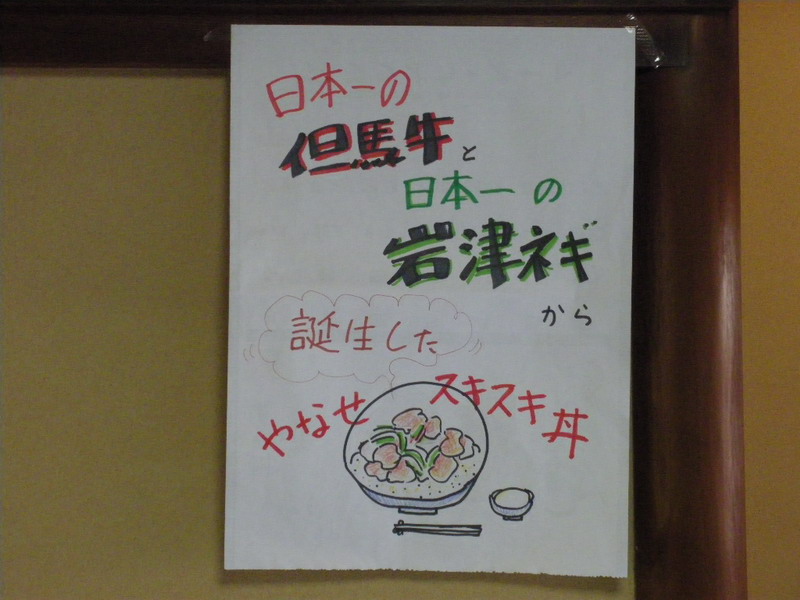 日本一の
但馬牛と
日本一の
岩津ネギ
から
誕生した
やなせ スキスキ丼